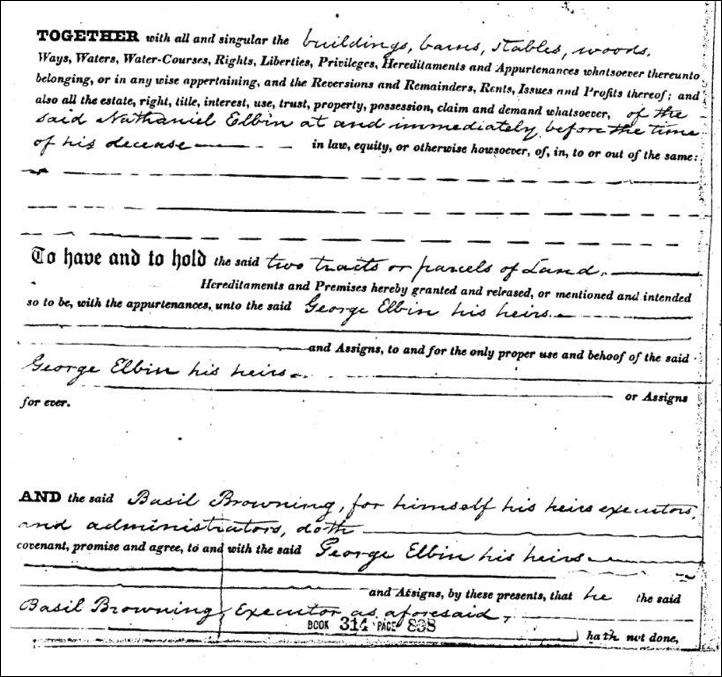 TOGETHER with all and singular the buildings, barns, stables, woods,
Ways, Waters, Water-Courses, Rights, Liberties, Privileges, Hereditaments and Appurtenances whatsoever thereunto
belonging, or in any wise appertaining, and the Reversions and Remainders, Rents, Issues and Profits thereof; and
also all the estate, right, title, interest, use, trust, property, possession, claim and demand whatsoever, of the
said Nathaniel Elbin at and immediately before the time
of his decease in law, equity, or otherwise howsoever, of, in, to or out of the same:
To have and to hold the said two tracts or parcels of Land.
Hereditaments and Premises hereby granted and released, or mentioned and intended
so to be, with the appurtenances, unto the said George Elbin his heirs
and Assigns, to and for the only proper use and behoof of the said
George Elbin his heirs
or Assigns
for ever.
AND the said Basil Browning, for himself his heirs executors,
and administrators, doth
covenant, promise and agree, to and with the said George Elbin his heirs
and Assigns, by these presents, that he the said
Basil Browning, Executor as aforesaid,
BOOK 314 PAGE 838
hath not done,